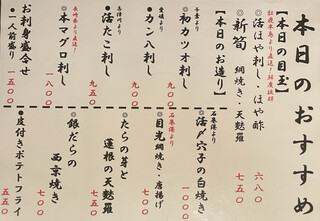 本日のおすすめ
【本日の目玉】
牡鹿半島より直送!鮮度抜群
・活ほや刺し・ほや酢 六八〇
・新筍 網焼き・天麩羅 五八〇
【本日のお造り】
千葉より
◎初カツオ刺し 七八〇
愛媛より
・カンパチ刺し 九五〇
志津川より
・活たこ刺し 九五〇
長崎県より直送!
◎本マグロ刺し 一八〇〇
お刺身盛合せ
・一人前盛り 一五〇〇
石巻港より
◎活〆穴子の白焼き 一〇〇〇
石巻港より
・目光 網焼き・唐揚げ 七〇〇
・たらの芽と
蓮根の天麩羅 五五〇
・銀だらの
西京焼き 七〇〇
・皮付きポテトフライ 五五〇